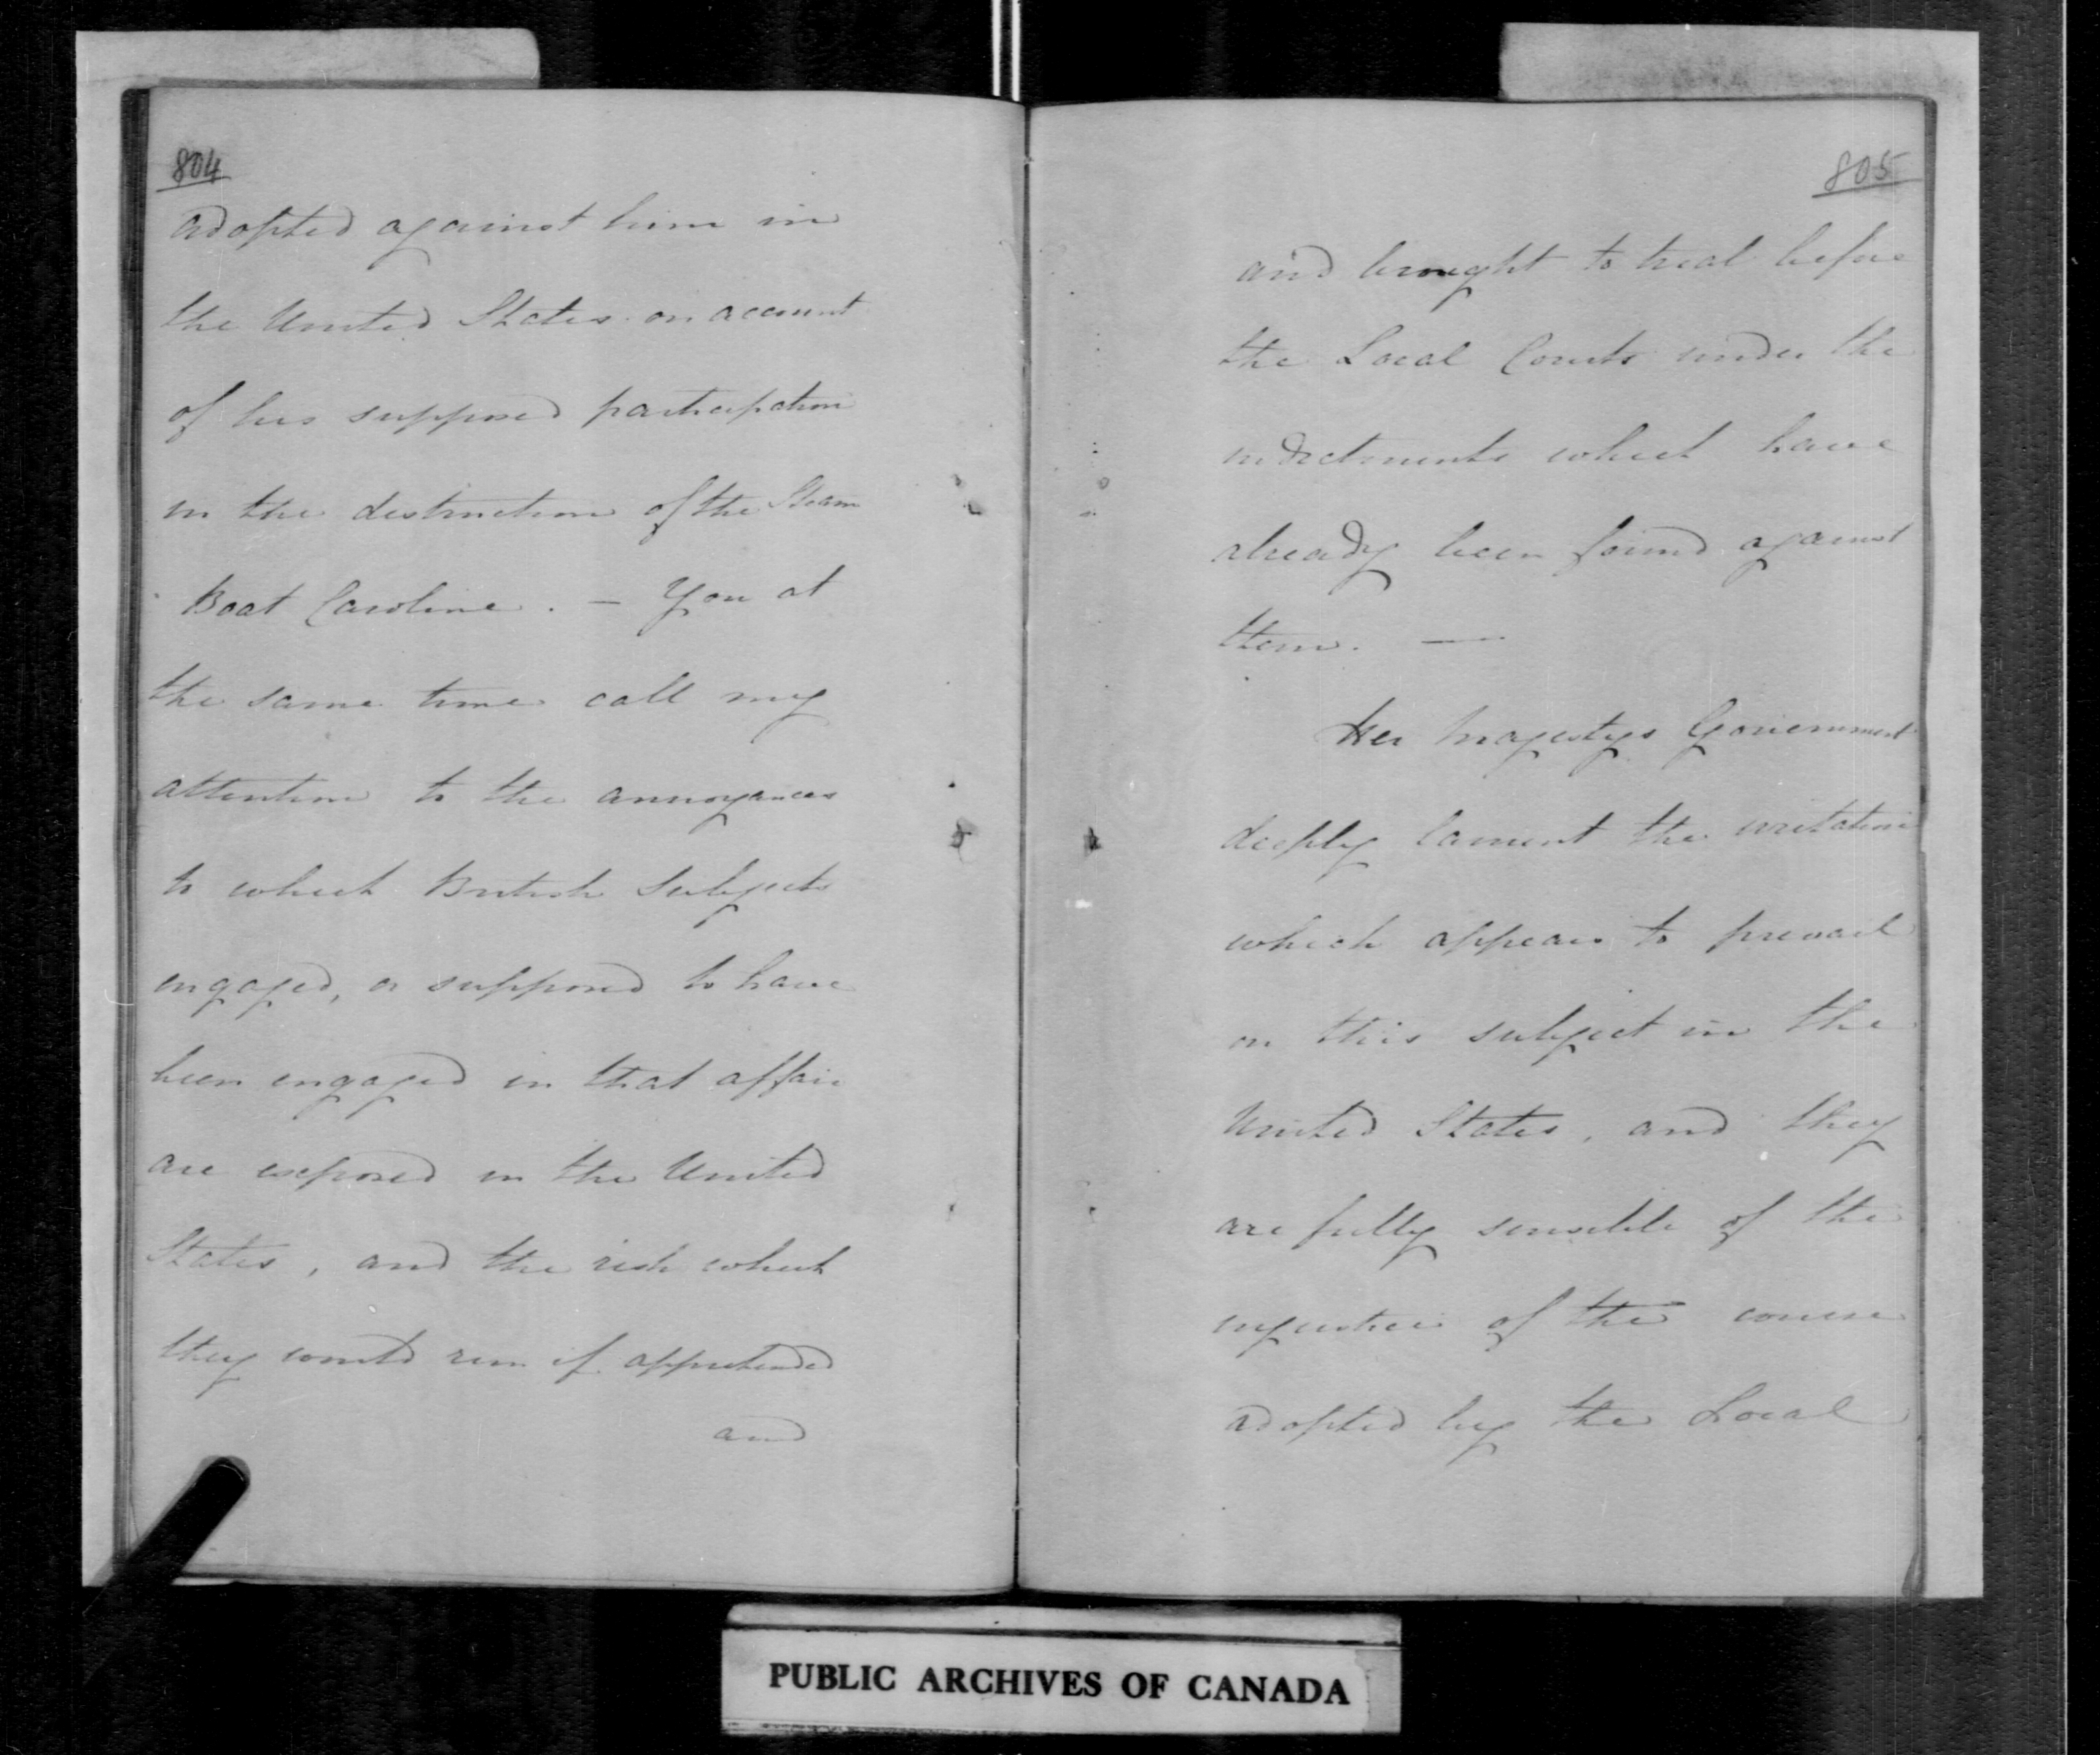 804
adopted against him in
the United States on account
of his supposed participation
in the destruction of the Steam
Boat Caroline. — You at
the same time call my
attention to the annoyances
to which British Subjects
engaged, or supposed to have
been engaged in that affair
are exposed in the United
States, and the risk which
they would run if apprehended
and
805
and brought to trial before
the Local Courts under the
indictments which have
already been found against
them. —
Her Majestys Government
deeply lament the irritation
which appears to prevail
on this subject in the
United States, and they
are fully sensible of the
injustice of the course
adopted by the Local
PUBLIC ARCHIVES OF CANADA